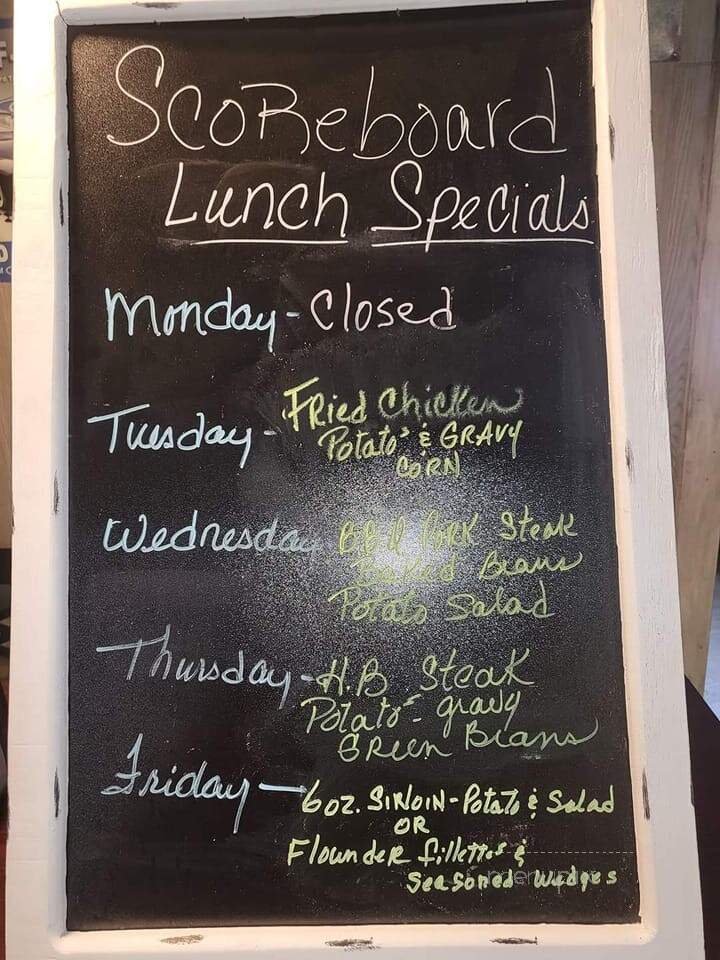 ScoReboard
Lunch Specials
Monday - Closed
Tuesday - FRied Chicken
Potato's & GRAVY
CORN
Wednesday B.B.Q PORK Steak
Baked Beans
Potato Salad
Thursday - H.B. Steak
Potato's - gravy
GReen Beans
Friday - 6oz. SIRloIN - Potato & Salad
OR
FlounDeR filletts &
Seasoned Wedges